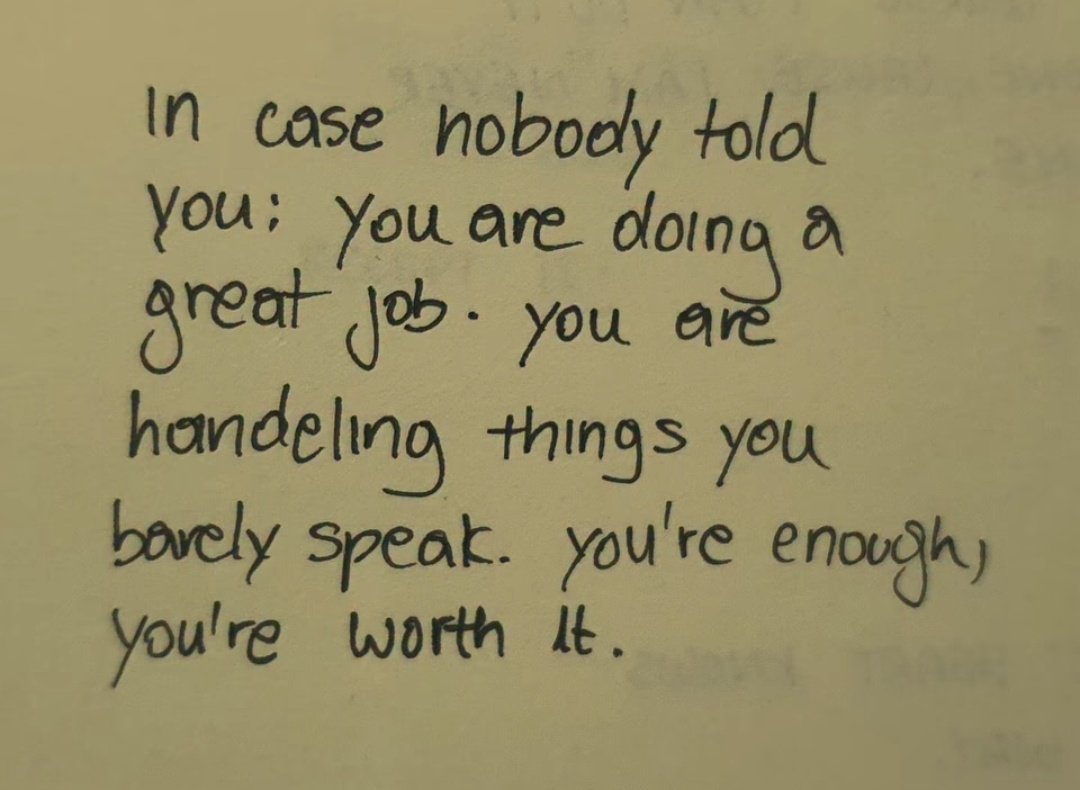 In case nobody told
you: you are doing a
great job. you are
handeling things you
barely speak. you're enough,
you're worth it.